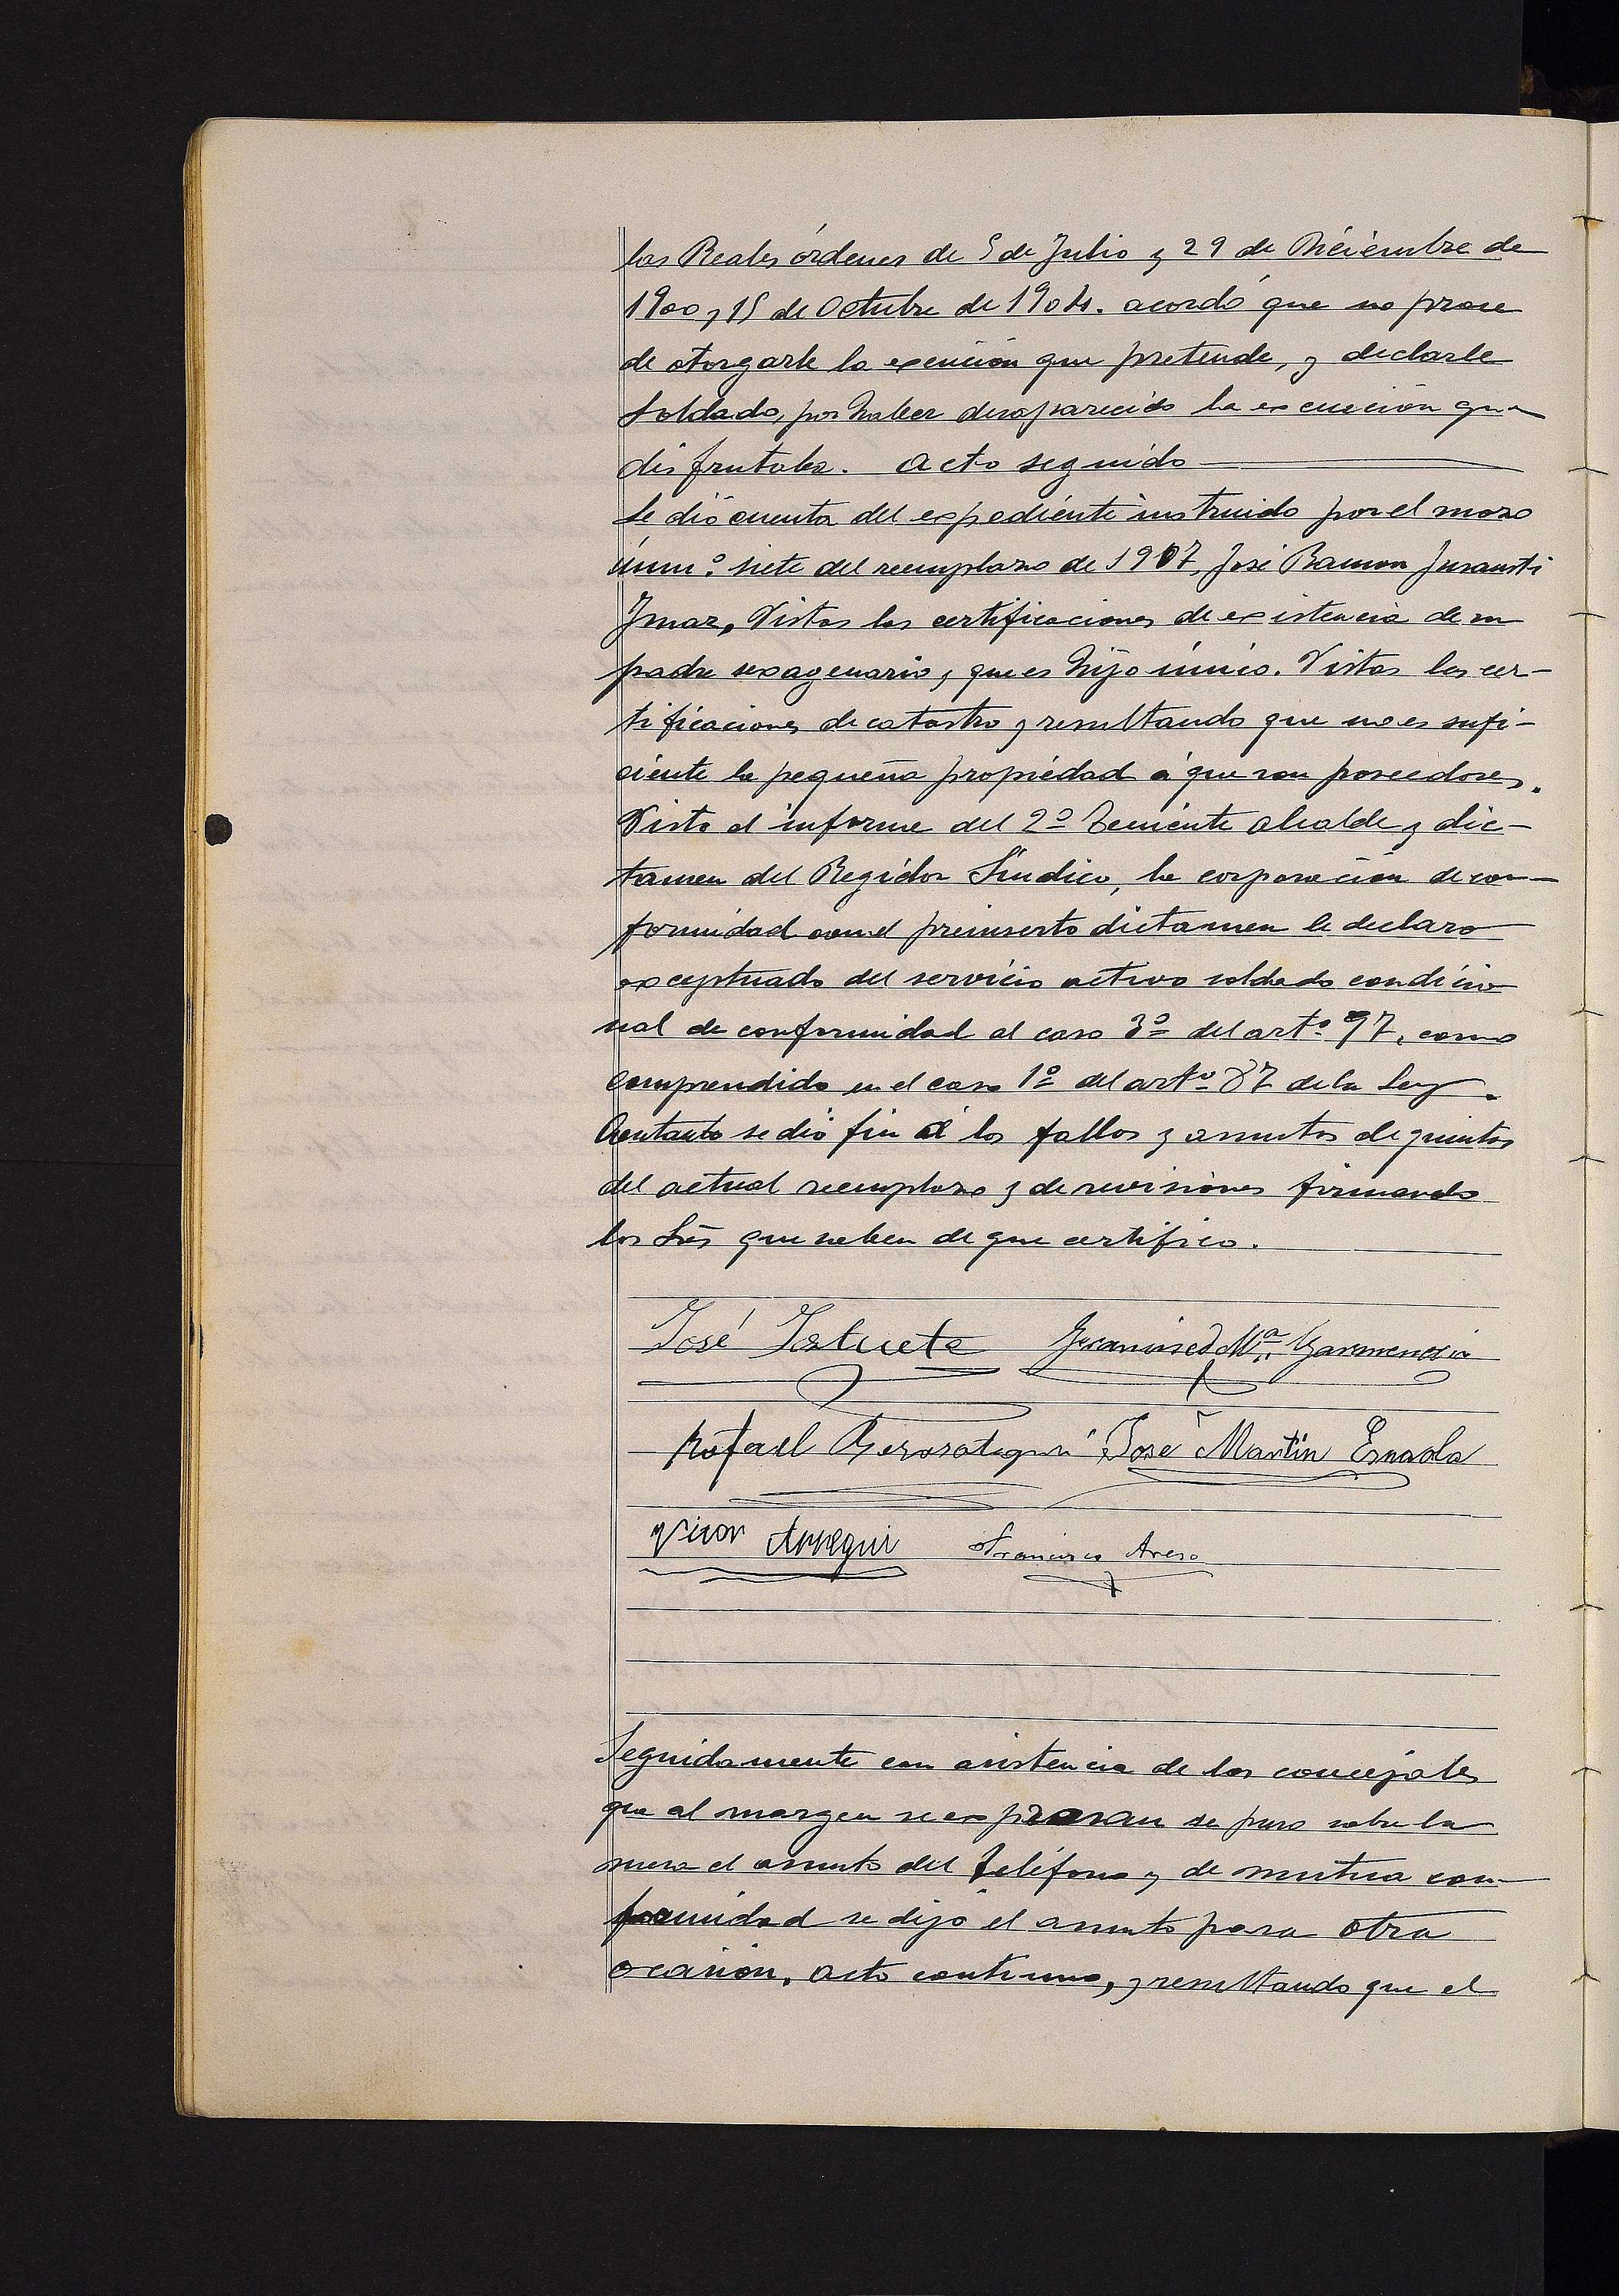 las Reales órdenes de 5 de Julio y 29 de Diciembre de
1900 y 15 de Octubre de 1904. acordó que no proce
de otorgarle la exención que pretende, y declarle
soldado, por haber desaparecido la excención que
disfrutaba. Acto seguido
Se dió cuenta del expediente instruido por el mozo
núm.º siete del reemplazo de 1907, José Ramon Jusausti
Imaz, Vistas las certificaciones de existencia de su
padre sexagenario y que es hijo único. Vistas las cer-
tificaciones de catastro y resultando que no es sufi-
ciente la pequeña propiedad á que son poseedores.
Visto el informe del 2º Teniente alcalde y dic-
tamen del Regidor Síndico, la corporación de con-
formidad con el preinserto dictamen le declaro
exceptuado del servicio activo soldado condicio
nal de conformidad al caso 3º del artº 97, como
comprendido en el caso 1º del artº 87 de la Ley.
Con tanto se dió fin á los fallos y asuntos de quintos
del actual reemplazo y de revisiones firmando
los Srs que saben de que certifico.
José Iztueta Francisco Mª Garmendia
Rafael Berasategui José Martin Esnaola
Victor Arregui Francisco
Seguidamente con asistencia de los concejales
que al margen se expresan se puso sobre la
mesa el asunto del Teléfono y de mutua con-
formidad se dijó el asunto para otra
ocasión. Acto continuo, y resultando que el